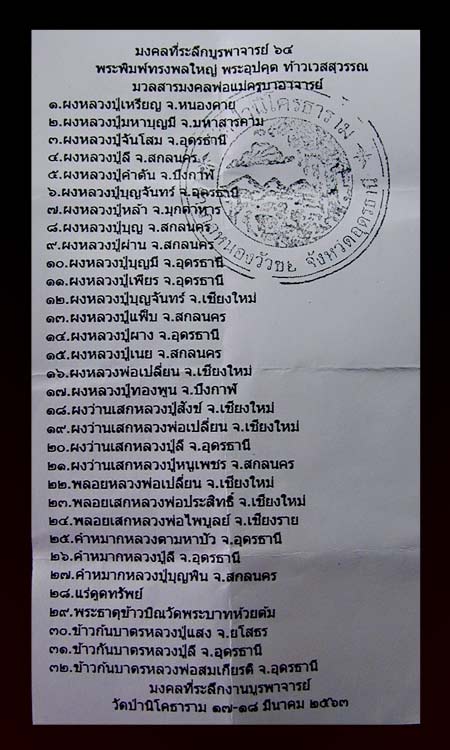 มงคลที่ระลึกบูรพาจารย์ ๖๔
พระพิมพ์ทรงพลใหญ่ พระอุปคุต ท้าวเวสสุวรรณ
มวลสารมงคลพ่อแม่ครูบาอาจารย์
๑.ผงหลวงปู่เหรียญ จ.หนองคาย
๒.ผงหลวงปู่มหาบุญมี จ.มหาสารคาม
๓.ผงหลวงปู่จันโสม จ.อุดรธานี
๔.ผงหลวงปู่ลี จ.สกลนคร
๕.ผงหลวงปู่คำตัน จ.บึงกาฬ
๖.ผงหลวงปู่บุญจันทร์ จ.อุดรธานี
๗.ผงหลวงปู่หล้า จ.มุกดาหาร
๘.ผงหลวงปู่บุญ จ.สกลนคร
๙.ผงหลวงปู่ผ่าน จ.สกลนคร
๑๐.ผงหลวงปู่บุญมี จ.อุดรธานี
๑๑.ผงหลวงปู่เพียร จ.อุดรธานี
๑๒.ผงหลวงปู่บุญจันทร์ จ.เชียงใหม่
๑๓.ผงหลวงปู่แฟ๊บ จ.สกลนคร
๑๔.ผงหลวงปู่ผาง จ.อุดรธานี
๑๕.ผงหลวงปู่เนย จ.สกลนคร
๑๖.ผงหลวงพ่อเปลี่ยน จ.เชียงใหม่
๑๗.ผงหลวงปู่ทองพูน จ.บึงกาฬ
๑๘.ผงว่านเสกหลวงปู่สังข์ จ.เชียงใหม่
๑๙.ผงว่านเสกหลวงพ่อเปลี่ยน จ.เชียงใหม่
๒๐.ผงว่านเสกหลวงปู่ลี จ.อุดรธานี
๒๑.ผงว่านเสกหลวงปู่หนูเพชร จ.สกลนคร
๒๒.พลอยหลวงพ่อเปลี่ยน จ.เชียงใหม่
๒๓.พลอยเสกหลวงพ่อประสิทธิ์ จ.เชียงใหม่
๒๔.พลอยเสกหลวงพ่อไพบูลย์ จ.เชียงราย
๒๕.คำหมากหลวงตามหาบัว จ.อุดรธานี
๒๖.คำหมากหลวงปู่ลี จ.อุดรธานี
๒๗.คำหมากหลวงปู่บุญพิน จ.สกลนคร
๒๘.แร่ดูดทรัพย์
๒๙.พระธาตุข้าวบิณวัดพระบาทห้วยต้ม
๓๐.ข้าวก้นบาตรหลวงปู่แสง จ.ยโสธร
๓๑.ข้าวก้นบาตรหลวงปู่ลี จ.อุดรธานี
๓๒.ข้าวก้นบาตรหลวงพ่อสมเกียรติ จ.อุดรธานี
มงคลที่ระลึกงานบูรพาจารย์
วัดป่านิโคธาราม ๑๗-๑๘ มีนาคม ๒๕๖๓
จังหวัดอุดรธานี